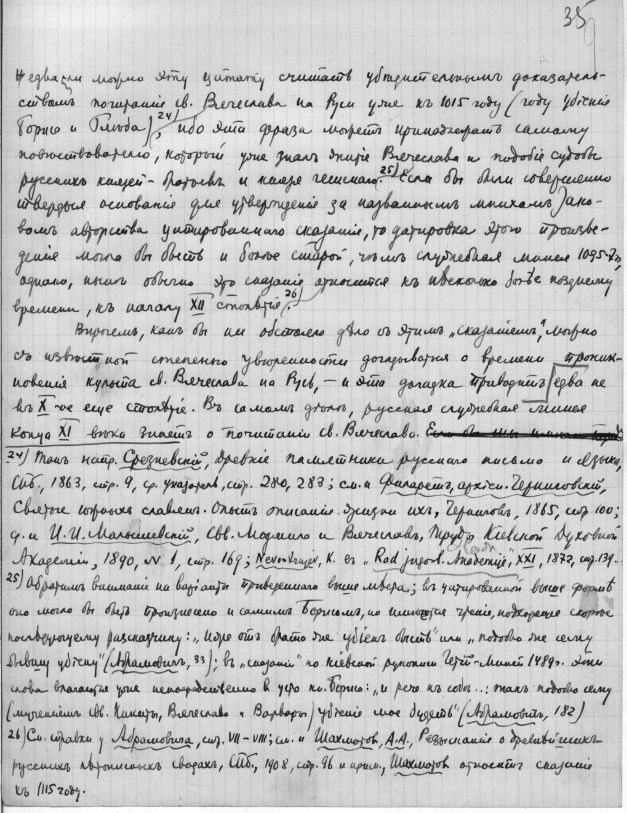 35
едва ли можно эту цитату считать убедительнымъ доказатель-
ствомъ почитанія св. Вячеслава на Руси уже къ 1015 году (году убіенія
Бориса и Глѣба) 24), ибо эта фраза можетъ принадлежать самому
повѣствователю, который уже зналъ житіе Вячеслава и подобіе судьбы
русскихъ князей-братьевъ и князя чешскаго. 25) Если бы были совершенно
твердыя основанія для утвержденія за названнымъ монахомъ Іако-
вомъ авторства цитированнаго сказанія, то датировка этого произве-
денія могла бы быть и болѣе старой, чѣмъ служебная минея 1095 г.,
однако, нынѣ обычно это сказаніе относится къ нѣсколько болѣе позднему
времени, къ началу XII столѣтія. 26)
Впрочемъ, какъ бы ни обстояло дѣло съ этимъ „сказаніемъ“, можно
съ извѣстной степенью увѣренности догадываться о времени проник-
новенія культа св. Вячеслава на Русь, – и эта догадка приводитъ едва не
въ X-ое еще столѣтіе. Въ самомъ дѣлѣ, русская служебная минея
конца XI вѣка знаетъ о почитаніи св. Вячеслава.
24) Такъ напр. Срезневскій, Древніе памятники русскаго письма и языка,
Спб., 1863, стр. 9, ср. указатель, стр. 280, 283; см. и Филаретъ, архіеп. Черниговскій,
Святые южныхъ славянъ. Опытъ описанія жизни ихъ, Черниговъ, 1865, стр. 100;
ср. и И. И. Малышевскій, Свв. Людмила и Вячеславъ, Труды Кіевской Духовной
Академіи, 1890, N. 1, стр. 169; Nevostrujev, K. въ „Rad jugosl. Akademije“, XXI, 1872, стр. 139.
25) Обратимъ вниманіе на варіанты приведеннаго выше мѣста; въ цитированной выше формѣ
оно могло бы быть произнесено и самимъ Борисомъ, но имѣются чтенія, подходящія скорѣе
послѣдующему разсказчику: „иже отъ брата же убіенъ бысть“ или „подобно же сему
бывшу убіену“ (Абрамовичъ, 33); въ „сказаніи“ по кіевской рукописи Четіи-Минеи 1489 г. эти
слова влагаются уже непосредственно въ уста кн. Бориса: „и рече къ собѣ..: такъ подобно сему
(мученіемъ свв. Никиты, Вячеслава и Варвары) убіеніе мое будетъ“ (Абрамовичъ, 182)
26) См. справки у Абрамовича, стр. VII–VIII; см. и Шахматовъ, А. А., Разысканія о древнѣйшихъ
русскихъ лѣтописныхъ сводахъ, Спб., 1908, стр. 96 и прим., Шахматовъ относитъ сказаніе
къ 1115 году.